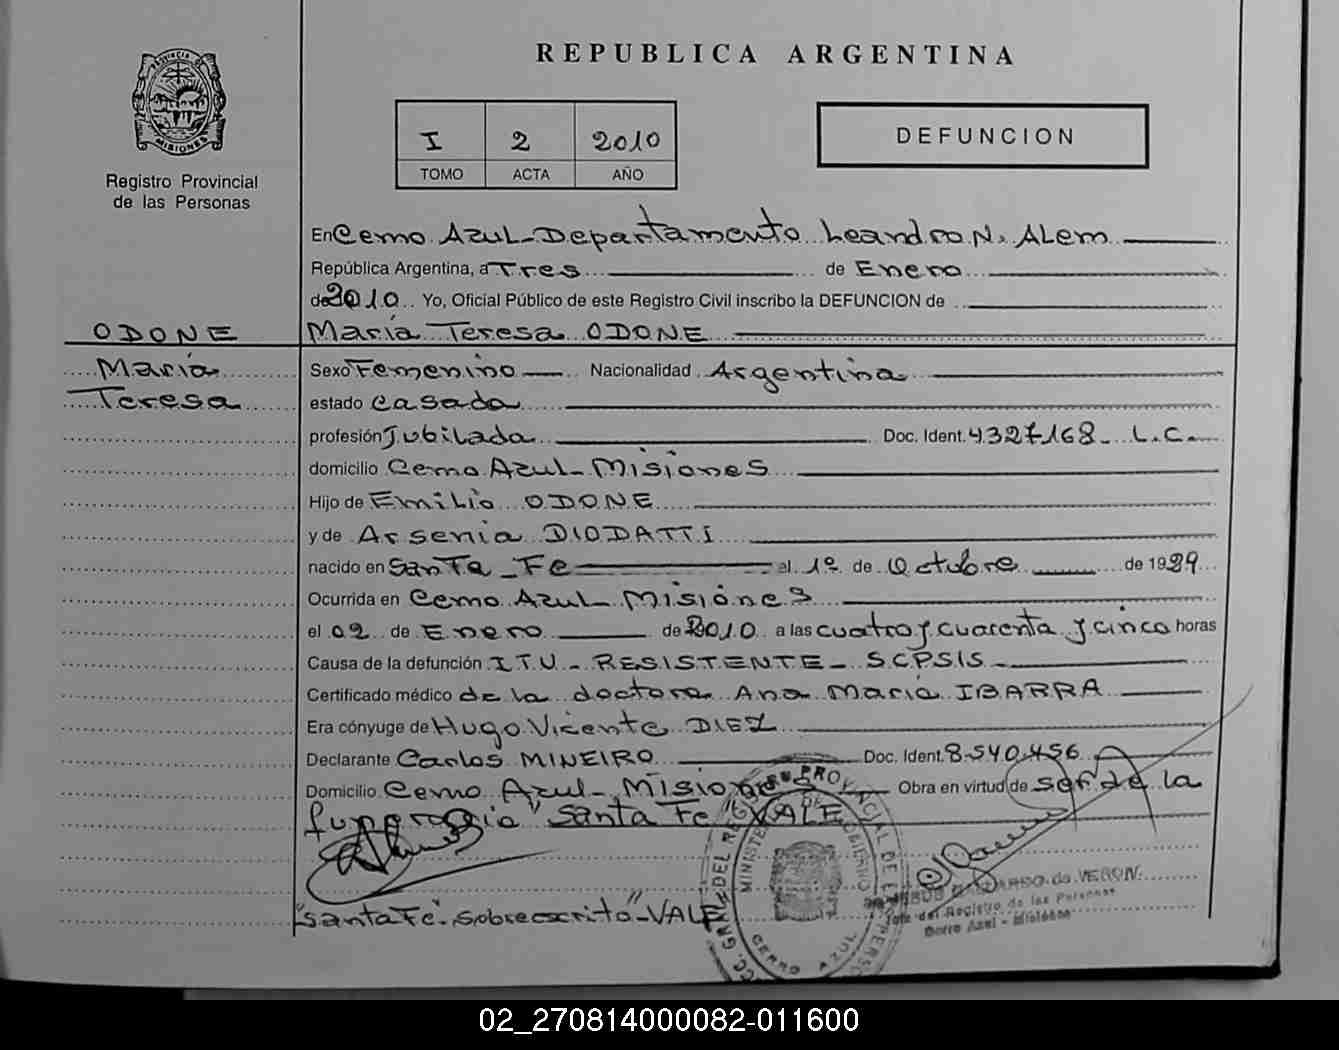 REPUBLICA ARGENTINA
PROVINCIA DE MISIONES
Registro Provincial
de las Personas
I 2 2010
TOMO ACTA AÑO
DEFUNCION
En Cerro Azul - Departamento Leandro N. ALem
República Argentina, a Tres de Enero
de 2010 Yo, Oficial Público de este Registro Civil inscribo la DEFUNCION de
ODONE
María
Teresa
María Teresa ODONE
Sexo Femenino Nacionalidad Argentina
estado casada
profesión Jubilada Doc. Ident. 4.327.168 - L.C.
domicilio Cerro Azul - Misiones
Hijo de Emilio ODONE
y de Arsenia DIODATTI
nacido en Santa Fe el 1º de Octubre de 19
Ocurrida en Cerro Azul - Misiones
el 02 de Enero de 2010 a las cuatro y cuarenta y cinco horas
Causa de la defunción I.T.U - RESISTENTE - SCPSIS
Certificado médico de la doctora Ana María IBARRA
Era cónyuge de Hugo Vicente DIEZ
Declarante Carlos MINEIRO Doc. Ident. 8.540.456
Domicilio Cerro Azul - Misiones Obra en virtud de ser de la
funeraria "Santa Fe" VALE
"Santa Fe" Sobreescrito" - VALE
DEL REGISTRO PROVINCIAL DE LAS PERSONAS
MINISTERIO DE GOBIERNO
CERRO AZUL
de VERON
Jefe del Registro de las Personas
Cerro Azul - Misiones
02_270814000082-011600